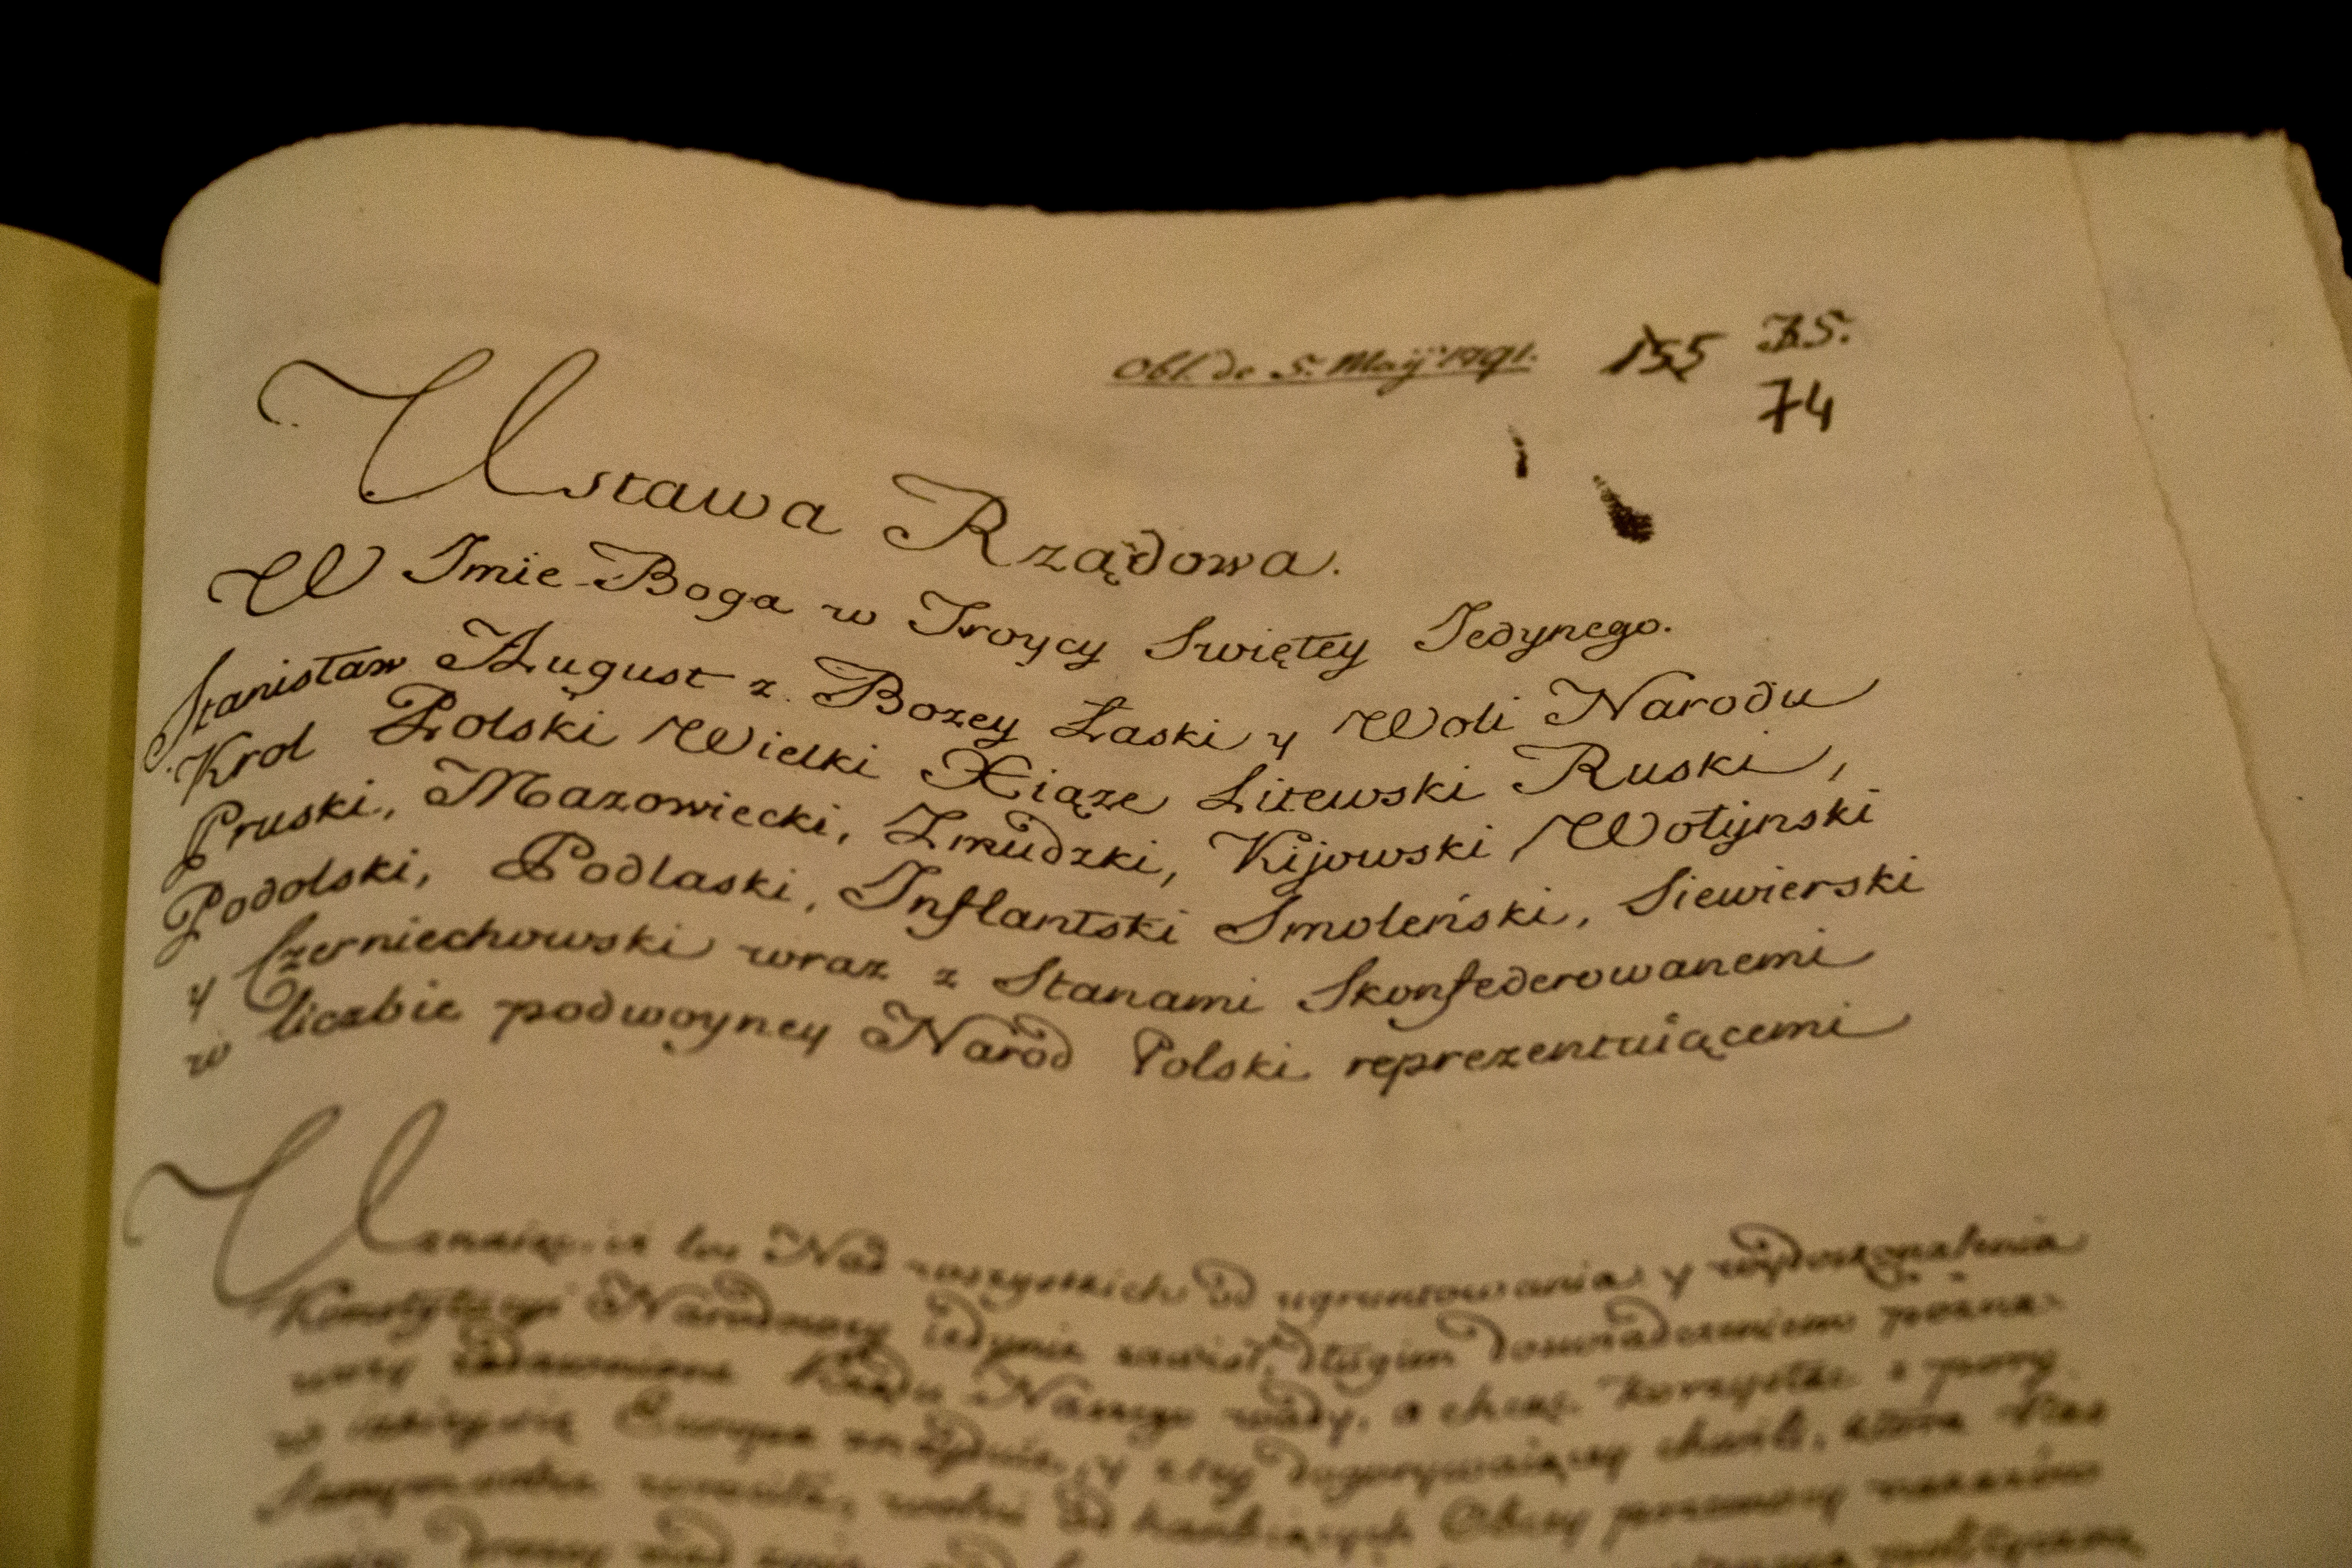 Obl. de 5. Maÿ 1791. 155 75.
74
Ustawa Rządowa.
W Imie Boga w Troycy Swiętey Jedynego.
Stanisław August z Bozey Łaski y Woli Narodu
Krol Polski Wielki Xiąze Litewski Ruski,
Pruski, Mazowiecki, Zmudzki, Kijowski, Wołÿnski
Podolski, Podlaski, Inflantski Smoleński, Siewierski
y Czerniechowski wraz z Stanami Skonfederowanemi
w liczbie podwoyney Naród Polski reprezentuiącemi
Uznaiąc, iż los Nas wszystkich od ugruntowania y wydoskonalenia
Konstytucyi Narodowey iedynie zawisł, długim doswiadczeniem pozna-
wszy zadawnione Rządu Naszego wady, a chcąc korzystac z pory
w iakiey się Europa znayduie, y z tey dogorywaiącey chwili, ktora Nas
Samym sobie wrociła, wolni od hanbiących Obcey przemocy nakazów